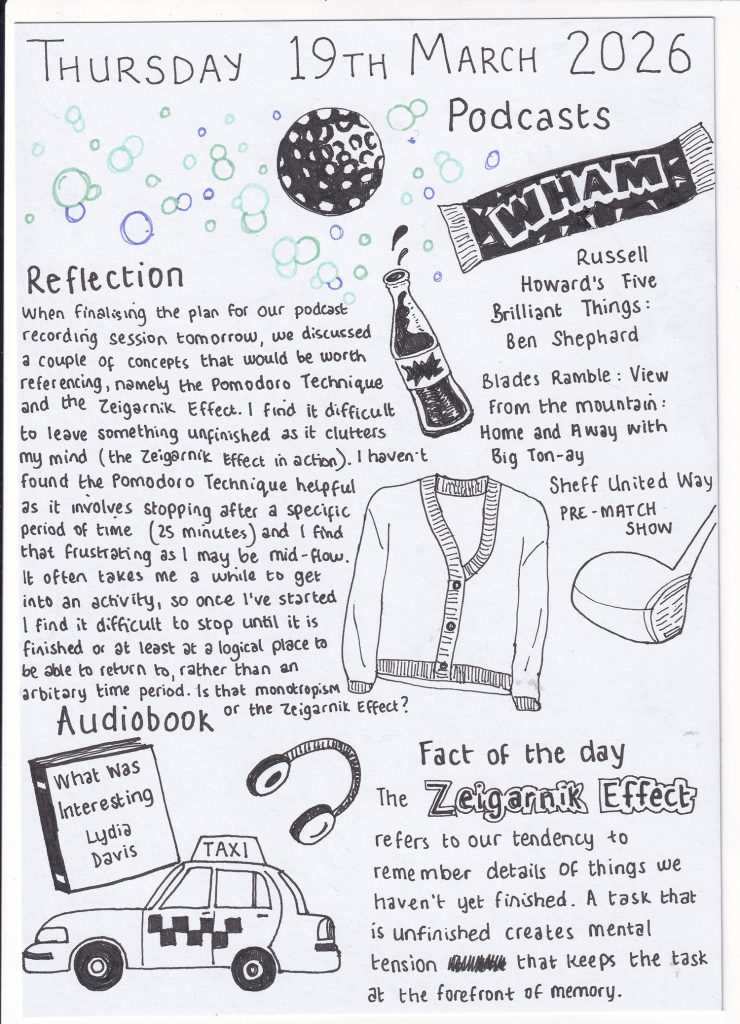 THURSDAY 19TH MARCH 2026
Podcasts
WHAM
Russell
Howard's Five
Brilliant Things:
Ben Shephard
Blades Ramble: View
From the mountain:
Home and Away with
Big Ton-ay
Sheff United Way
PRE-MATCH
SHOW
Reflection
When finalising the plan for our podcast
recording session tomorrow, we discussed
a couple of concepts that would be worth
referencing, namely the Pomodoro Technique
and the Zeigarnik Effect. I find it difficult
to leave something unfinished as it clutters
my mind (the Zeigarnik Effect in action). I haven't
found the Pomodoro Technique helpful
as it involves stopping after a specific
period of time (25 minutes) and I find
that frustrating as I may be mid-flow.
It often takes me a while to get
into an activity, so once I've started
I find it difficult to stop until it is
finished or at least at a logical place to
be able to return to, rather than an
arbitary time period. Is that monotropism
or the Zeigarnik Effect?
Audiobook
What Was
Interesting
Lydia
Davis
TAXI
Fact of the day
The Zeigarnik Effect
refers to our tendency to
remember details of things we
haven't yet finished. A task that
is unfinished creates mental
tension that keeps the task
at the forefront of memory.